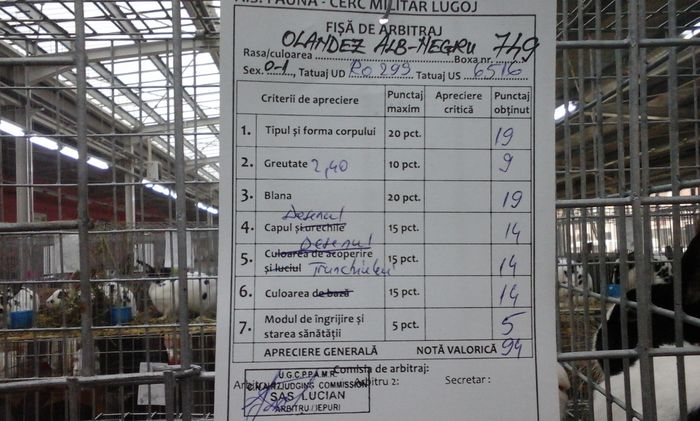 A.S. FAUNA - CERC MILITAR LUGOJ
FIȘĂ DE ARBITRAJ
Rasa/culoarea OLANDEZ ALB-NEGRU Boxa nr. 749
Sex. 0-1, Tatuaj UD RO 299. Tatuaj US 6516
Criterii de apreciere Punctaj maxim Apreciere critică Punctaj obținut
1. Tipul și forma corpului 20 pct. 19
2. Greutate 2,40 10 pct. 9
3. Blana 20 pct. 19
4. Capul și urechile Desenul 15 pct. 14
5. Culoarea de acoperire și luciul Desenul Trunchiului 15 pct. 14
6. Culoarea de bază 15 pct. 14
7. Modul de îngrijire și starea sănătății 5 pct. 5
APRECIERE GENERALĂ NOTĂ VALORICĂ 94
Comisia de arbitraj:
Arbitru Arbitru 2: Secretar :
U.G.C.P.P.A.M.R.
JUDGING COMMISSION
SAS LUCIAN
ARBITRU IEPURI